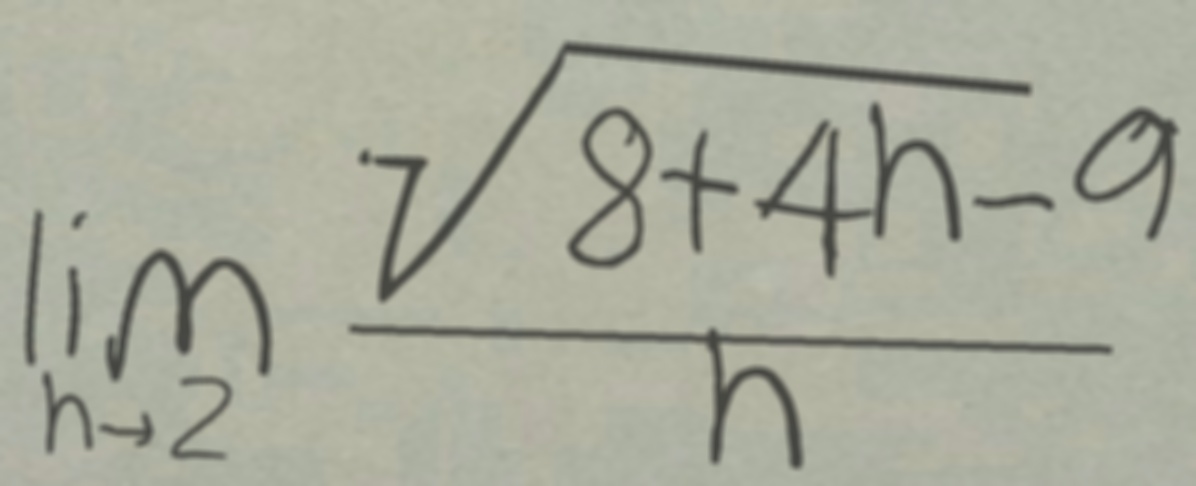 \lim_{h \to 2} \frac{\sqrt{8+4h}-9}{h}